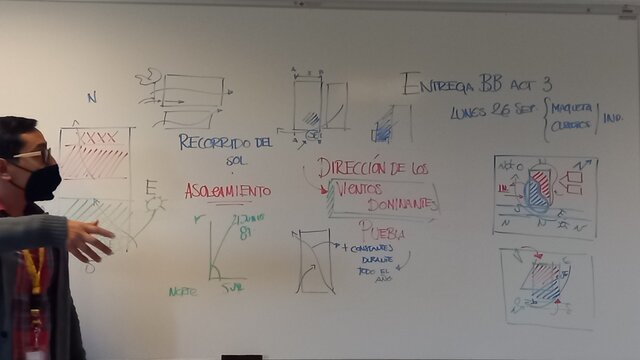 ENTREGA BB ACT 3
LUNES 26 SEP.
MAQUETA
IND.
N
XXXX
E
RECORRIDO DEL
SOL
ASOLEAMIENTO
DIRECCIÓN DE LOS
VIENTOS
DOMINANTES
PUEBLA
+ CONSTANTES
DURANTE
TODO EL
AÑO
21 JUNIO
NORTE